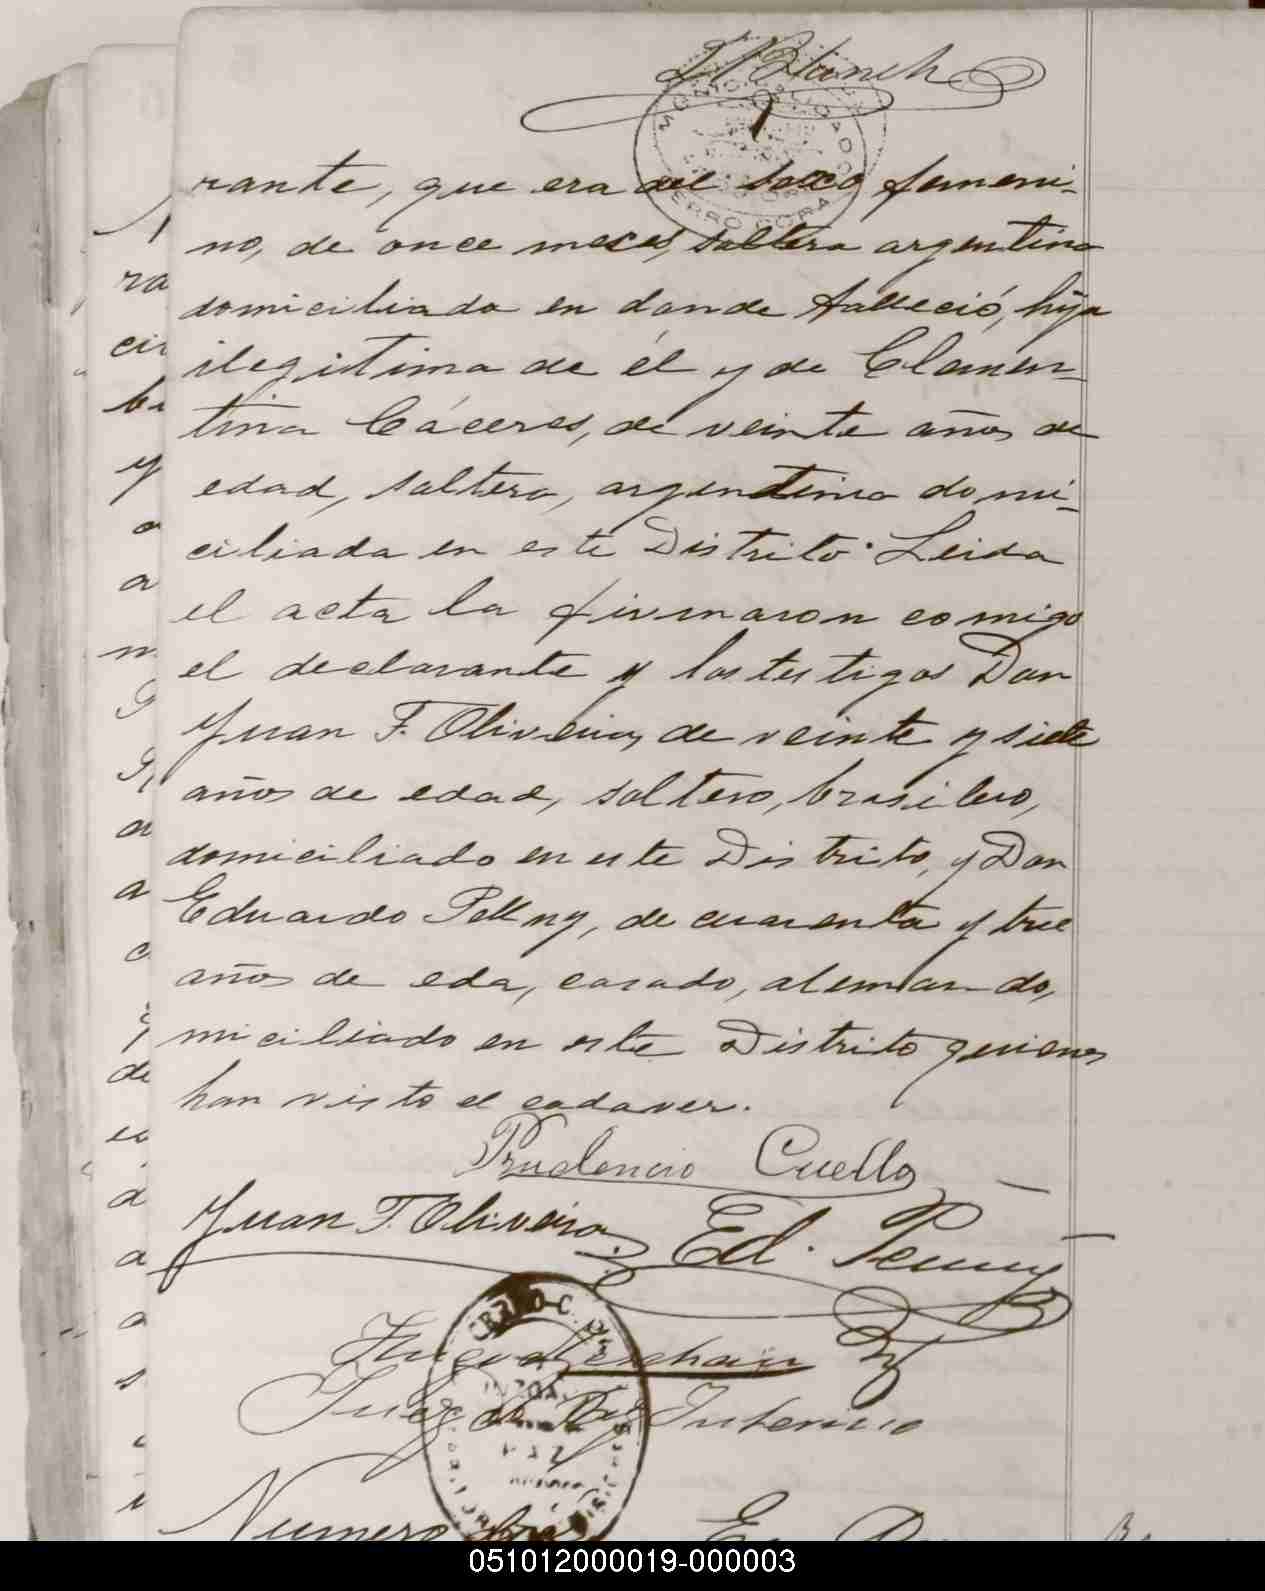 rante, que era del sexo femeni-
no, de once meses, soltera argentina
domiciliada en donde falleció, hija
ilegitima de él y de Clemen-
tina Cáceres, de veinte años de
edad, soltera, argentina domi-
ciliada en este Distrito. Leida
el acta la firmaron comigo
el declarante y los testigos Don
Juan F. Oliveira, de veinte y siete
años de edad, soltero, brasilero,
domiciliado en este Distrito, y Don
Eduardo de cuarenta y tres
años de eda, casado, aleman do,
miciliado en este Distrito quienes
han visto el cadaver.
Prudencio Cuello
Juan F. Oliveira Ed. Penny
Juez de Paz Interino
Numero En
051012000019-000003